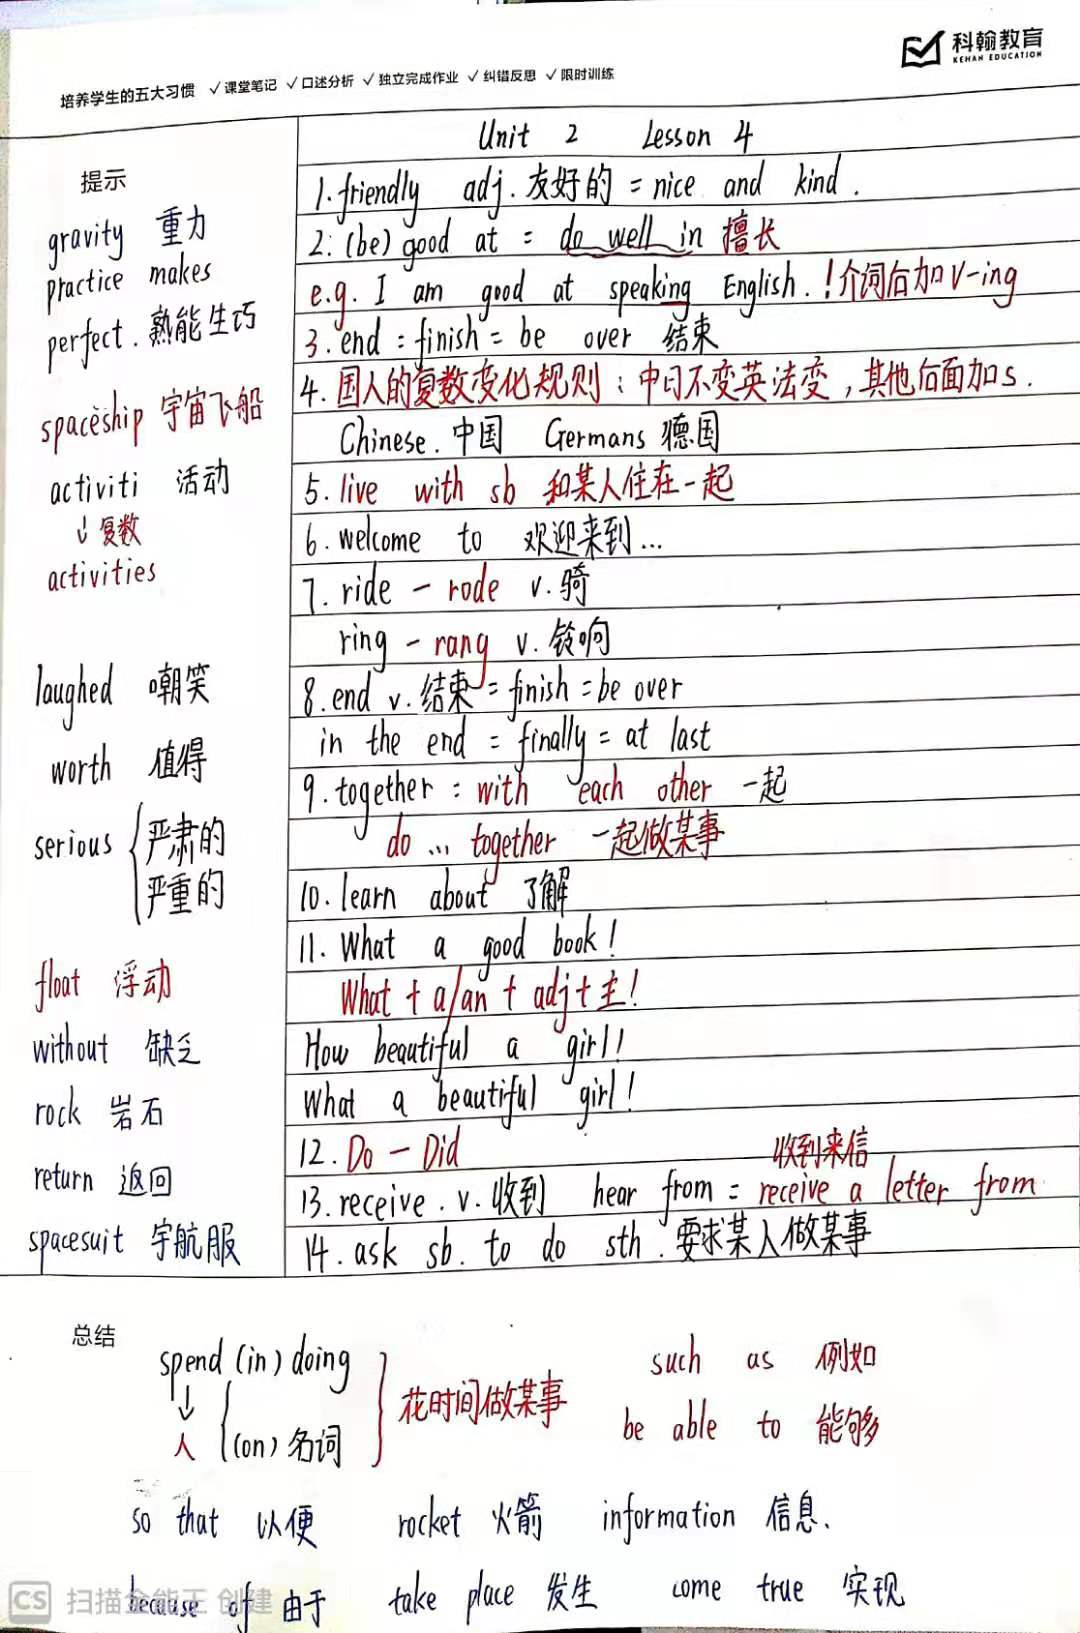 科翰教育
KEHAN EDUCATION
培养学生的五大习惯 ✓课堂笔记 ✓口述分析 ✓独立完成作业 ✓纠错反思 ✓限时训练
提示
gravity 重力
practice makes
perfect. 熟能生巧
spaceship 宇宙飞船
activiti 活动
↓复数
activities
laughed 嘲笑
worth 值得
serious { 严肃的
严重的
float 浮动
without 缺乏
rock 岩石
return 返回
spacesuit 宇航服
Unit 2 Lesson 4
1.friendly adj.友好的 = nice and kind.
2.(be) good at = do well in 擅长
e.g. I am good at speaking English. !介词后加V-ing
3.end = finish = be over 结束
4.国人的复数变化规则：中日不变英法变，其他后面加s.
Chinese.中国 Germans 德国
5.live with sb 和某人住在一起
6.welcome to 欢迎来到...
7.ride - rode v.骑
ring - rang v.铃响
8.end v.结束 = finish = be over
in the end = finally = at last
9.together = with each other 一起
do ... together 一起做某事
10.learn about 了解
11.What a good book!
What + a/an + adj + 主!
How beautiful a girl!
What a beautiful girl!
12.Do - Did
收到来信
13.receive.v.收到 hear from = receive a letter from
14.ask sb. to do sth.要求某人做某事
总结
spend (in) doing
↓
人
(on) 名词
花时间做某事
such as 例如
be able to 能够
so that 以便 rocket 火箭 information 信息.
because of 由于 take place 发生 come true 实现
CS 扫描全能王 创建